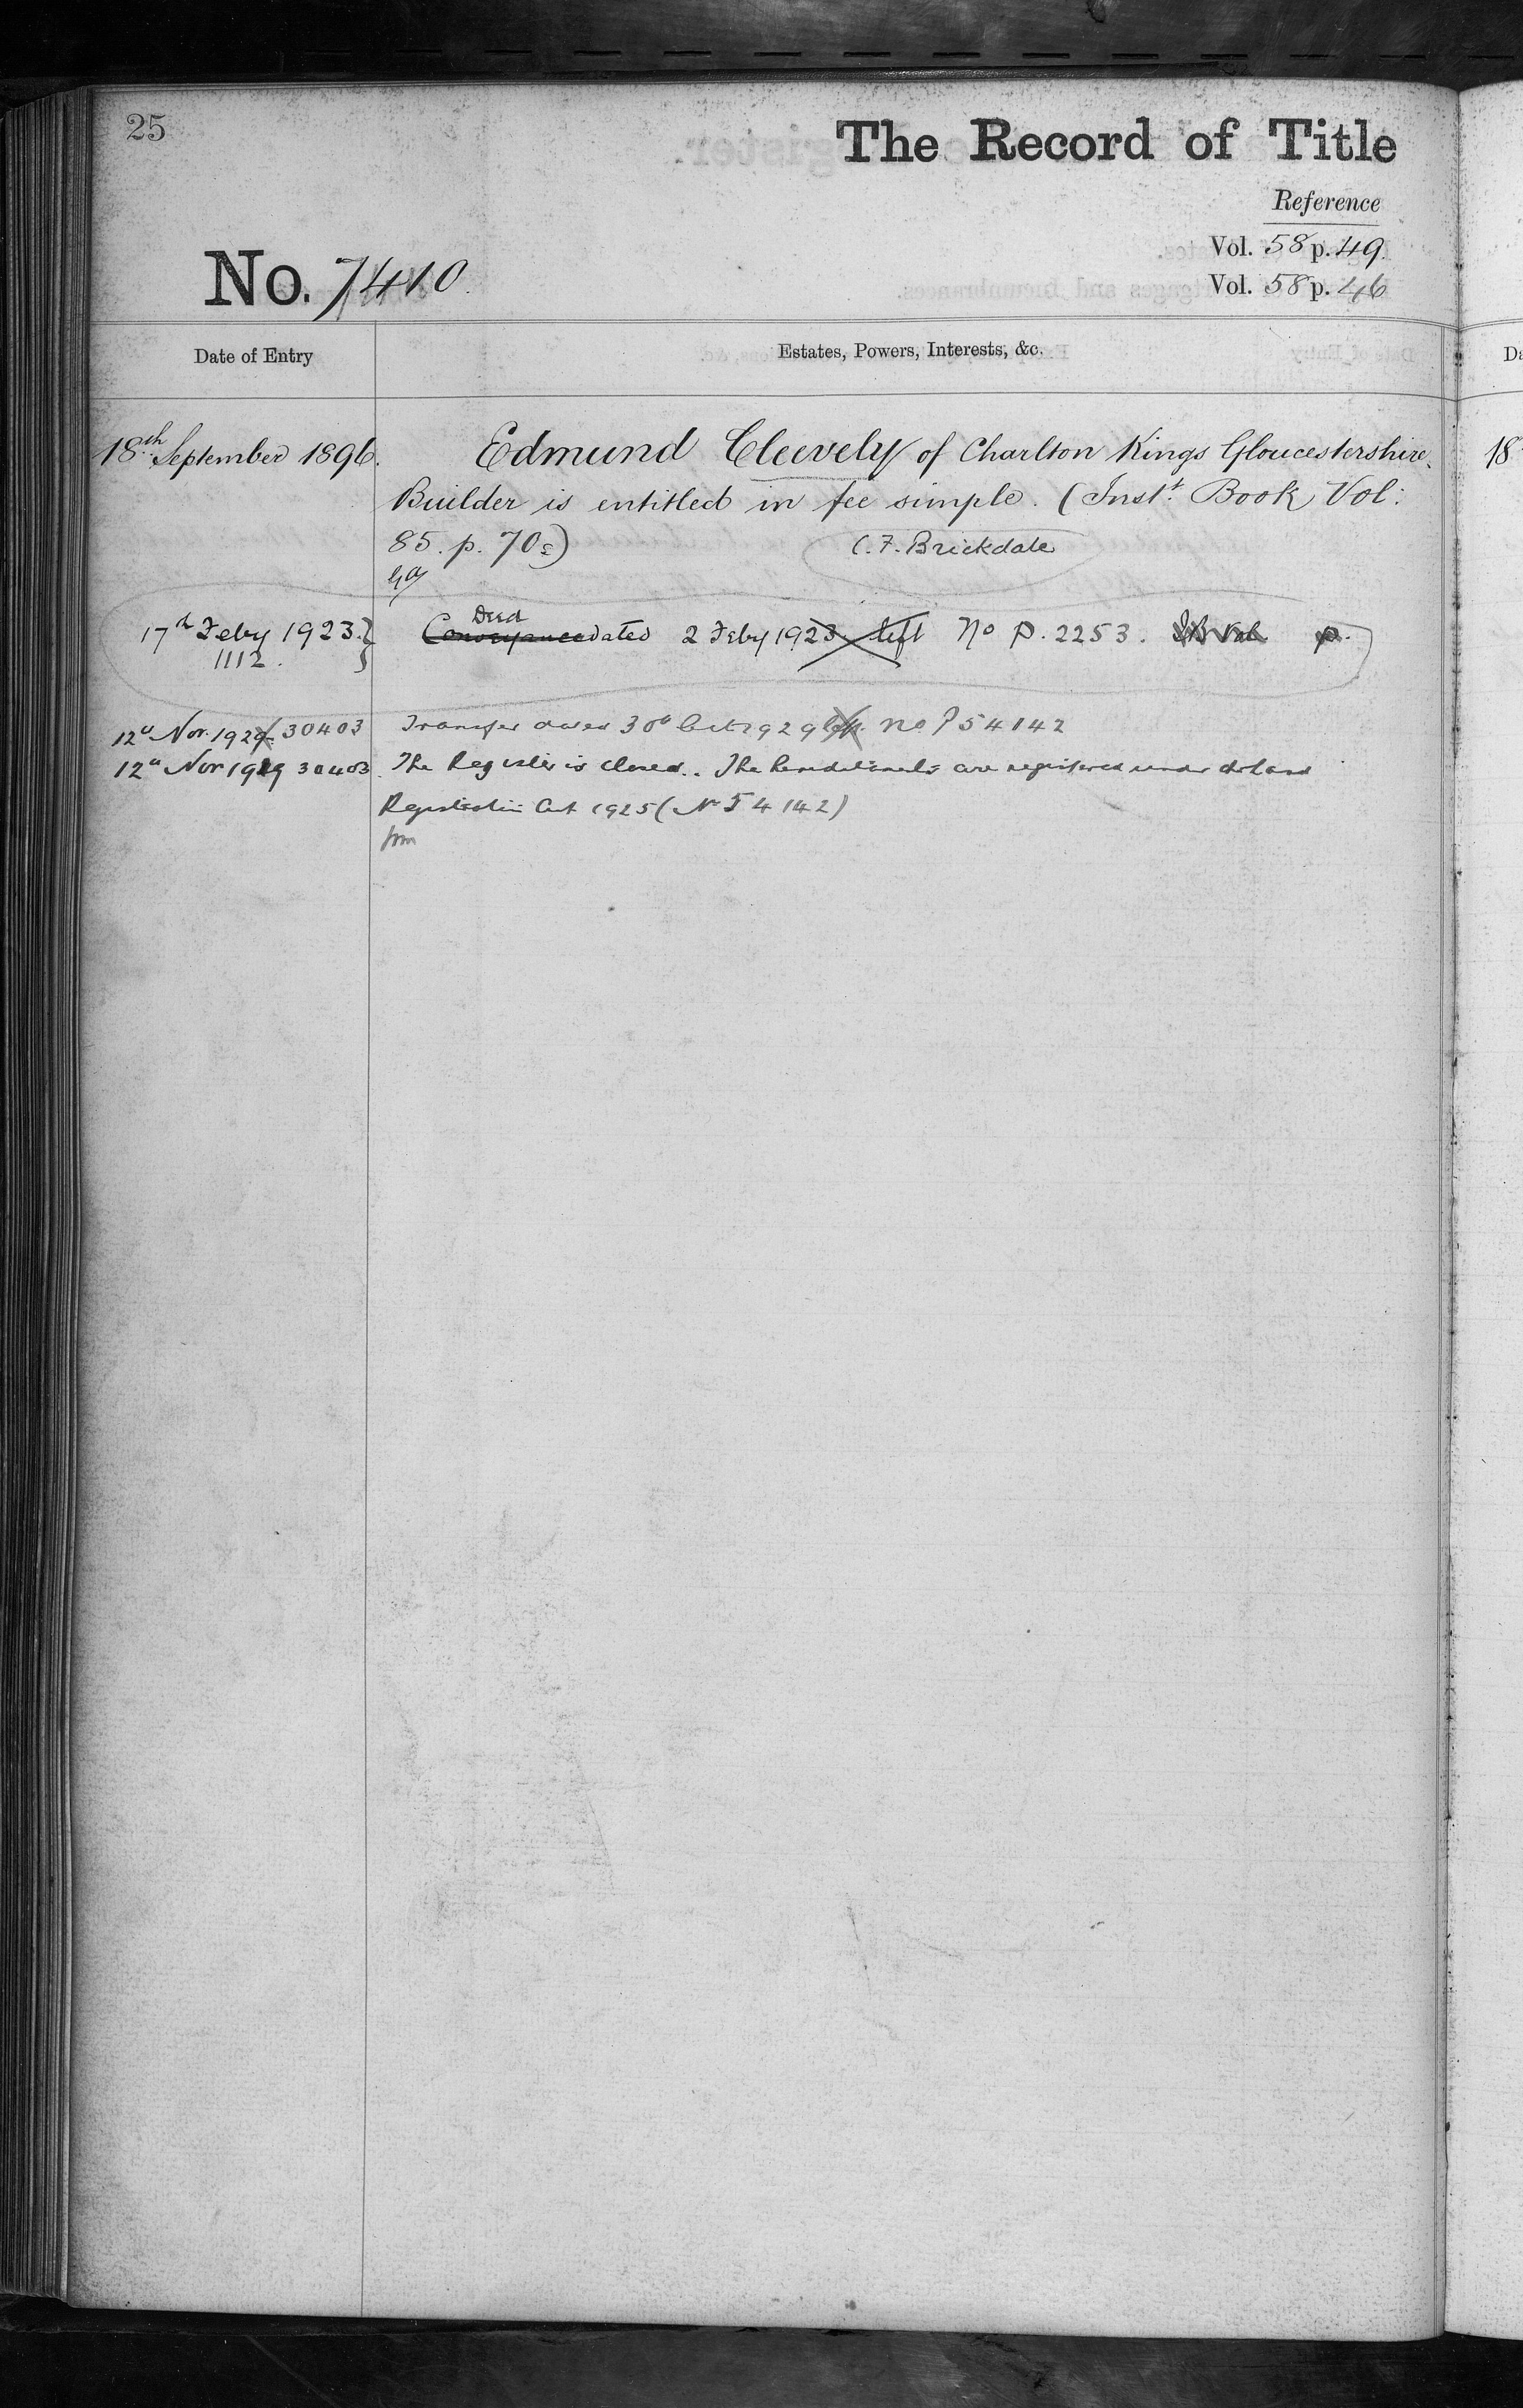 25
The Record of Title
Reference
Vol. 58 p. 49.
Vol. 58 p. 46
No. 7410.
Date of Entry
Estates, Powers, Interests, &c.
18th September 1896.
Edmund Cleevely of Charlton Kings Gloucestershire,
Builder is entitled in fee simple. (Inst.t Book Vol:
85. p. 70
C. F. Brickdale
17th Feby 1923.
1112.
Deed
Conveyance dated 2 Feby 1923. left No P. 2253. IB Vol p.
12th Nov. 1929 30403
Transfer dated 30th Oct 1929 No P 54142
12th Nov 1929 30403
The Register is closed. The hereditaments are registered under the Land
Registration Act 1925 (No 54142)
18